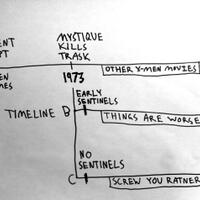 ENT
PT
MYSTIQUE
KILLS
TRASK
EN
MES
1973
OTHER X-MEN MOVIES
EARLY
SENTINELS
TIMELINE B
THINGS ARE WORSE
NO
SENTINELS
C
SCREW YOU RATNER